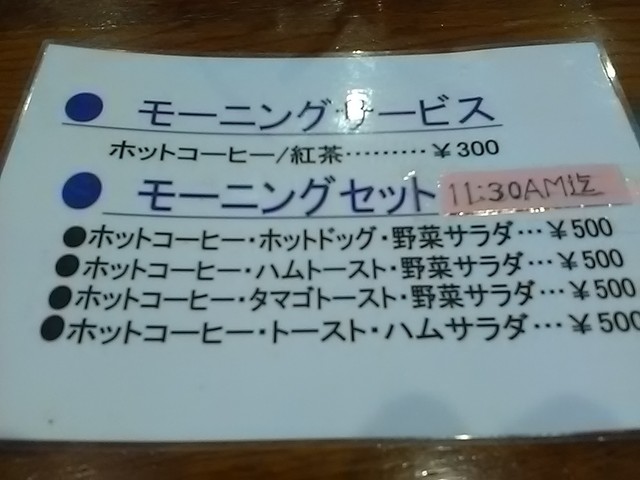 ● モーニングサービス
ホットコーヒー/紅茶………¥300
● モーニングセット 11:30AM迄
●ホットコーヒー・ホットドッグ・野菜サラダ…¥500
●ホットコーヒー・ハムトースト・野菜サラダ…¥500
●ホットコーヒー・タマゴトースト・野菜サラダ…¥500
●ホットコーヒー・トースト・ハムサラダ…¥500